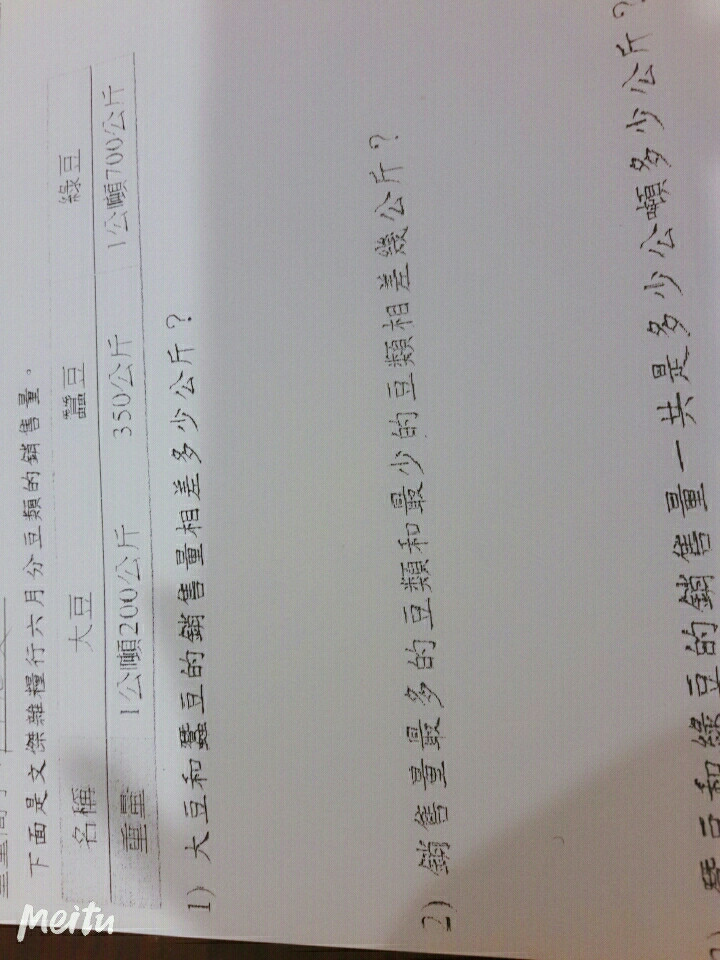 下面是文傑雜糧行六月分豆類的銷售量。
名稱 大豆 蠶豆 綠豆
重量 1公噸200公斤 350公斤 1公噸700公斤
1) 大豆和蠶豆的銷售量相差多少公斤？
2) 銷售量最多的豆類和最少的豆類相差幾公斤？
蠶豆和綠豆的銷售量一共是多少公噸多少公斤？
Meitu